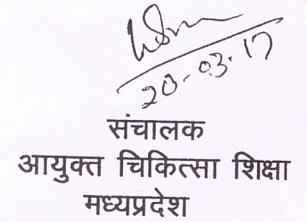 20-03-17
संचालक
आयुक्त चिकित्सा शिक्षा
मध्यप्रदेश